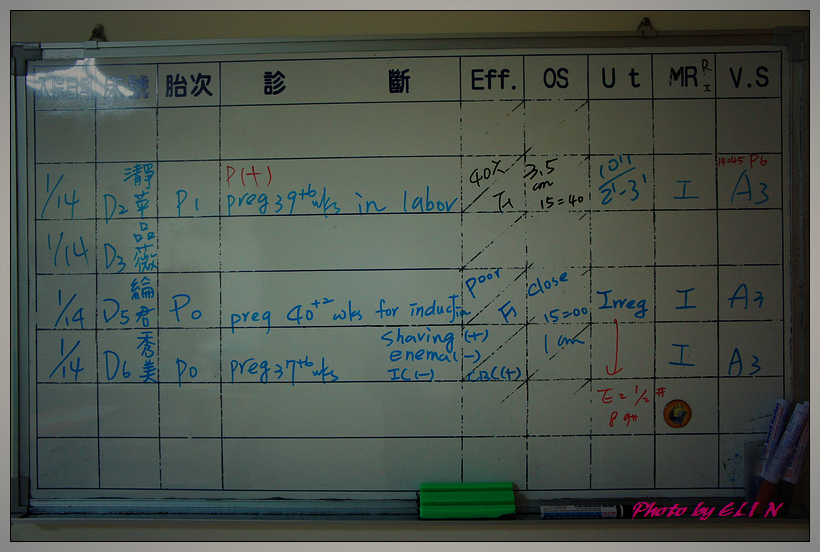 入院日期 床號 胎次 診 斷 Eff. OS Ut MR RI V.S
1/14 D2 瀞華 P1 P(+) preg 39+6 wks in labor 40% 3.5 cm 15=40 10'' 2'-3' I 14:45 P6 A3
1/14 D3 品薇
1/14 D5 綸君 P0 preg 40+2 wks for induction poor close 15=00 Irreg I A3
1/14 D6 秀美 P0 preg 37+6 wks 1 cm I A3
shaving (+)
enema (-)
IC(-) CBC(+)
E= 1/2 #
8 9#
Photo by ELI N